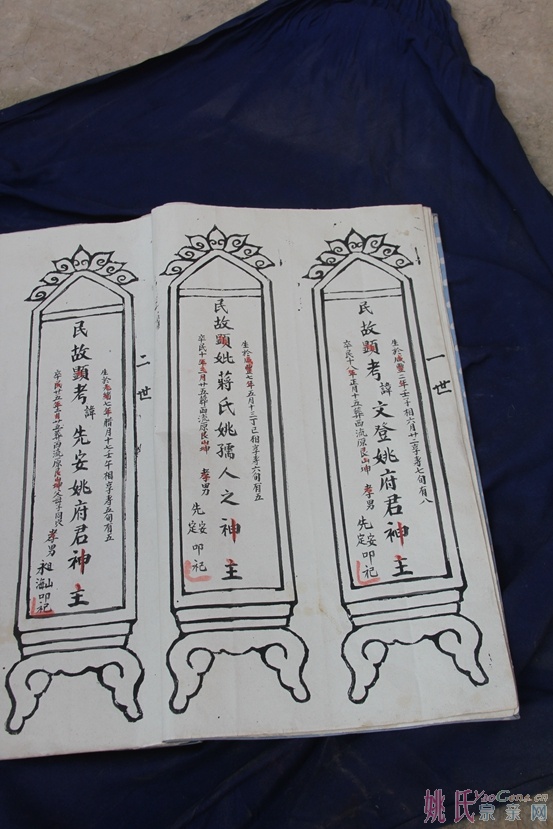 一世
生於咸豐二年壬子相六月廿二享壽七旬有八
民故顯考諱文登姚府君神主
卒民十八年正月十五葬西流原艮山坤
孝男先安定叩祀
生於咸豐七年五月十三丁巳相享壽六旬有五
民故顯妣蔣氏姚孺人之神主
卒民十年五月廿五葬西流原艮山坤
孝男先安定叩祀
二世
生於光緒七年腊月十七壬午相享壽五旬有五
民故顯考諱先安姚府君神主
卒民廿五年 月廿 葬西流原艮山坤
孝男 山海叩祀
姚氏宗亲网
YaoGens.cn